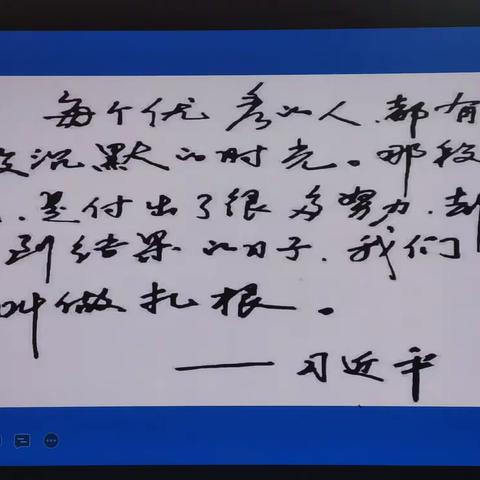 每个优秀的人,都有
段沉默的时光。那段
,是付出了很多努力,却
到结果的日子,我们
叫做扎根。
——习近平